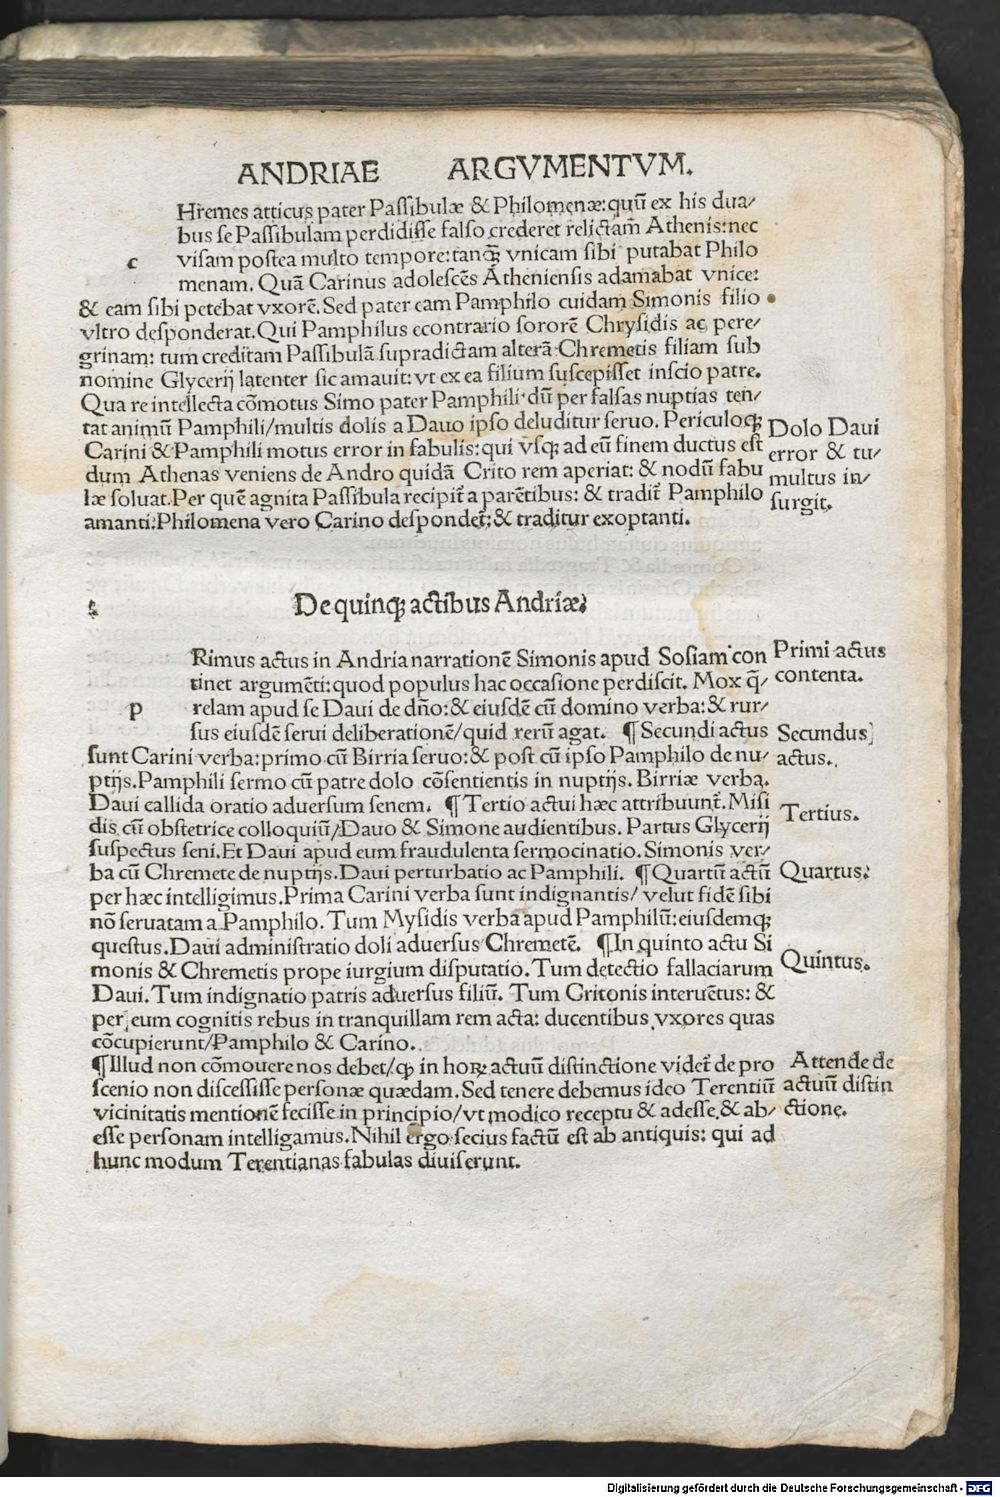 ANDRIAE ARGVMENTVM.
c
Hremes atticus pater Paſſibulæ & Philomenæ:quū ex his dua/
bus ſe Paſſibulam perdidiſſe falſo crederet relictam Athenis:nec
viſam poſtea multo tempore:tanqꝫ vnicam ſibi putabat Philo
menam. Quā Carinus adoleſcēs Atheniensis adamabat vnice:
& eam ſibi petebat vxorē. Sed pater eam Pamphilo cuidam Simonis filio
vltro deſponderat. Qui Pamphilus econtrario ſororē Chryſidis ac pere/
grinam: tum creditam Paſſibulā ſupradictam alterā Chremetis filiam ſub
nomine Glycerij latenter ſic amauit: vt ex ea filium ſuscepiſſet inſcio patre.
Qua re intellecta cōmotus Simo pater Pamphili dū per falſas nuptias ten/
tat animū Pamphili/multis dolis a Dauo ipſo deluditur ſeruo. Periculoqꝫ
Carini & Pamphili motus error in fabulis: qui vſqꝫ ad eū finem ductus eſt
dum Athenas veniens de Andro quidā Crito rem aperiat: & nodū fabu
læ ſoluat. Per quē agnita Paſſibula recipit̄ a parētibus: & tradit̄ Pamphilo
amanti: Philomena vero Carino deſpondet̄: & traditur exoptanti.
Dolo Daui
error & tu/
multus in/
ſurgit.
De quinqꝫ actibus Andriæ.
p
Rimus actus in Andria narrationē Simonis apud Soſiam con
tinet argumēti: quod populus hac occaſione perdiſcit. Mox q̄/
relam apud ſe Daui de dño: & eiuſdē cū domino verba: & rur/
ſus eiuſdē ſerui deliberationē/quid rerū agat. ¶ Secundi actus
ſunt Carini verba: primo cū Birria ſeruo: & poſt cū ipſo Pamphilo de nu/
ptijs. Pamphili ſermo cū patre dolo cōſentientis in nuptijs. Birriæ verba.
Daui callida oratio aduerſum ſenem. ¶ Tertio actui hæc attribuunt̄. Miſi
dis cū obſtetrice colloquiū/Dauo & Simone audientibus. Partus Glycerij
ſuſpectus ſeni. Et Daui apud eum fraudulenta ſermocinatio. Simonis ver/
ba cū Chremete de nuptijs. Daui perturbatio ac Pamphili. ¶ Quartū actū
per hæc intelligimus. Prima Carini verba ſunt indignantis/ velut fidē ſibi
nō ſeruatam a Pamphilo. Tum Myſidis verba apud Pamphilū: eiuſdemqꝫ
queſtus. Daui adminiſtratio doli aduerſus Chremetē. ¶ In quinto actu Si
monis & Chremetis prope iurgium diſputatio. Tum detectio fallaciarum
Daui. Tum indignatio patris aduerſus filiū. Tum Critonis interuētus: &
per eum cognitis rebus in tranquillam rem acta: ducentibus vxores quas
cōcupierunt/Pamphilo & Carino.
¶ Illud non cōmouere nos debet/ꝙ in hoꝝ actuū diſtinctione videt̄ de pro
ſcenio non diſceſſiſſe perſonæ quædam. Sed tenere debemus ideo Terentiū
vicinitatis mentionē feciſſe in principio/vt modico receptu & adeſſe & ab/
eſſe perſonam intelligamus. Nihil ergo ſecius factū eſt ab antiquis: qui ad
hunc modum Terentianas fabulas diuiſerunt.
Primi actus
contenta.
Secundus
actus.
Tertius.
Quartus.
Quintus.
Attende de
actuū diſtin
ctione.
Digitalisierung gefördert durch die Deutsche Forschungsgemeinschaft - DFG